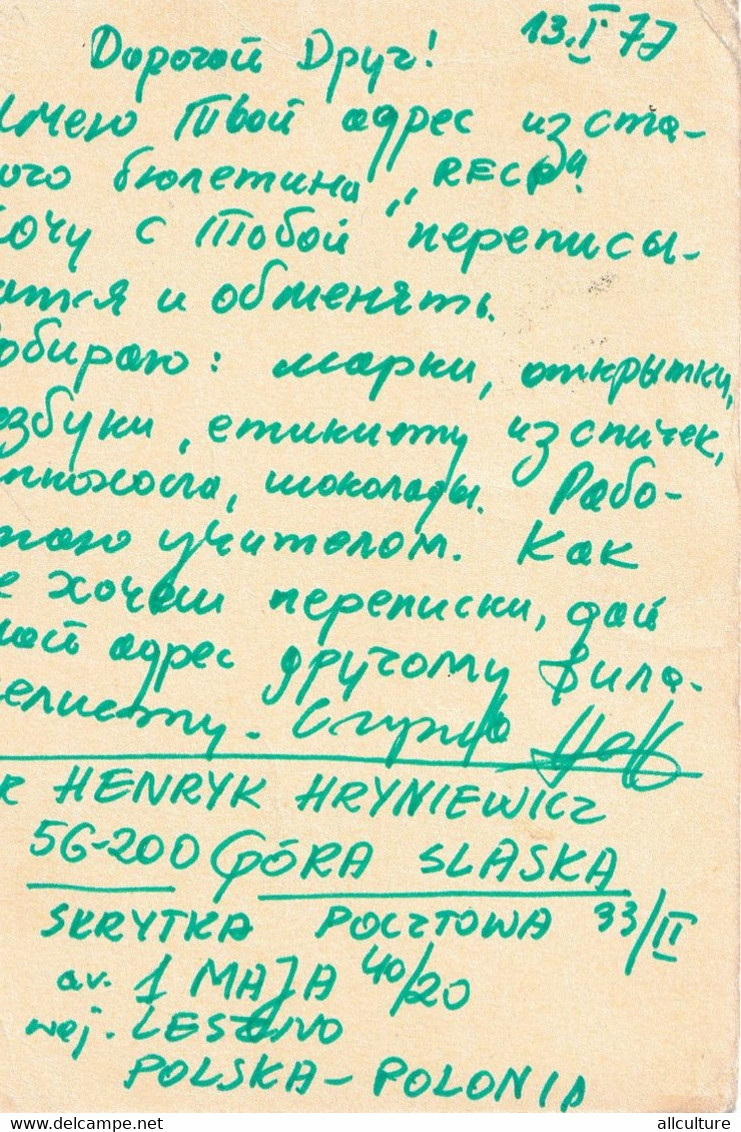 13.I 77
Дорогой Друг!
Имею Твой адрес из ста-
ого бюлетина „RECP".
Хочу с Тобой переписы-
атся и обменять.
обираю: марки, открытки,
етикиту из спичек,
шоколады. Рабо-
таю учителом. Как
е хочеш переписки, дай
мой адрес другому фила-
елисту.
HENRYK HRYNIEWICZ
56-200 GÓRA SLASKA
SKRYTKA POCZTOWA 33/II
av. 1 MAJA 40/20
woj. LESZNO
POLSKA - POLONIA
allculture